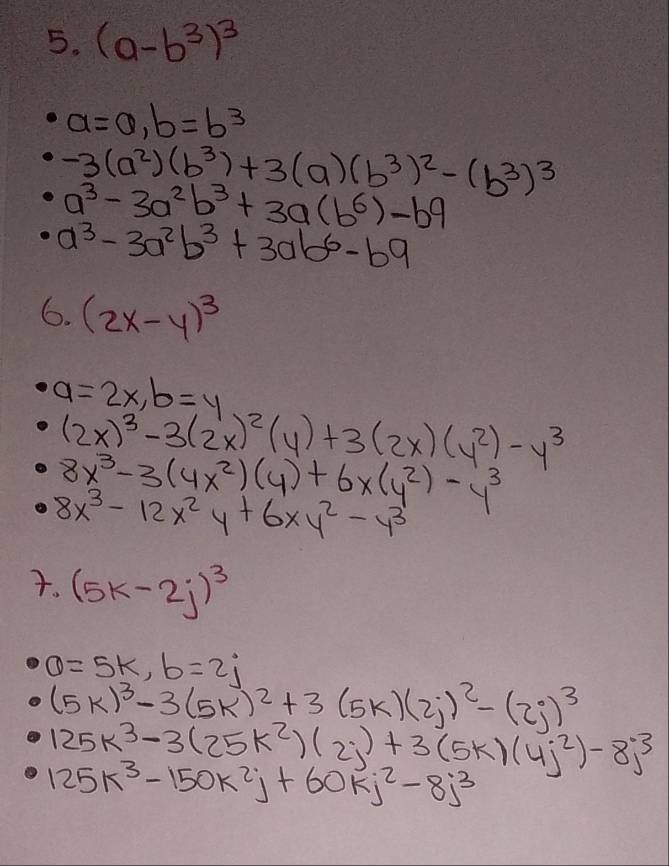 5. (a-b³)³
• a=a, b=b³
• -3(a²)(b³)+3(a)(b³)²-(b³)³
• a³-3a²b³+3a(b⁶)-b9
• a³-3a²b³+3ab⁶-b9
6. (2x-y)³
• a=2x, b=y
• (2x)³-3(2x)²(y)+3(2x)(y²)-y³
• 8x³-3(4x²)(y)+6x(y²)-y³
• 8x³-12x²y+6xy²-y³
7. (5k-2j)³
• a=5k, b=2j
• (5k)³-3(5k)²+3(5k)(2j)²-(2j)³
• 125k³-3(25k²)(2j)+3(5k)(4j²)-8j³
• 125k³-150k²j+60kj²-8j³